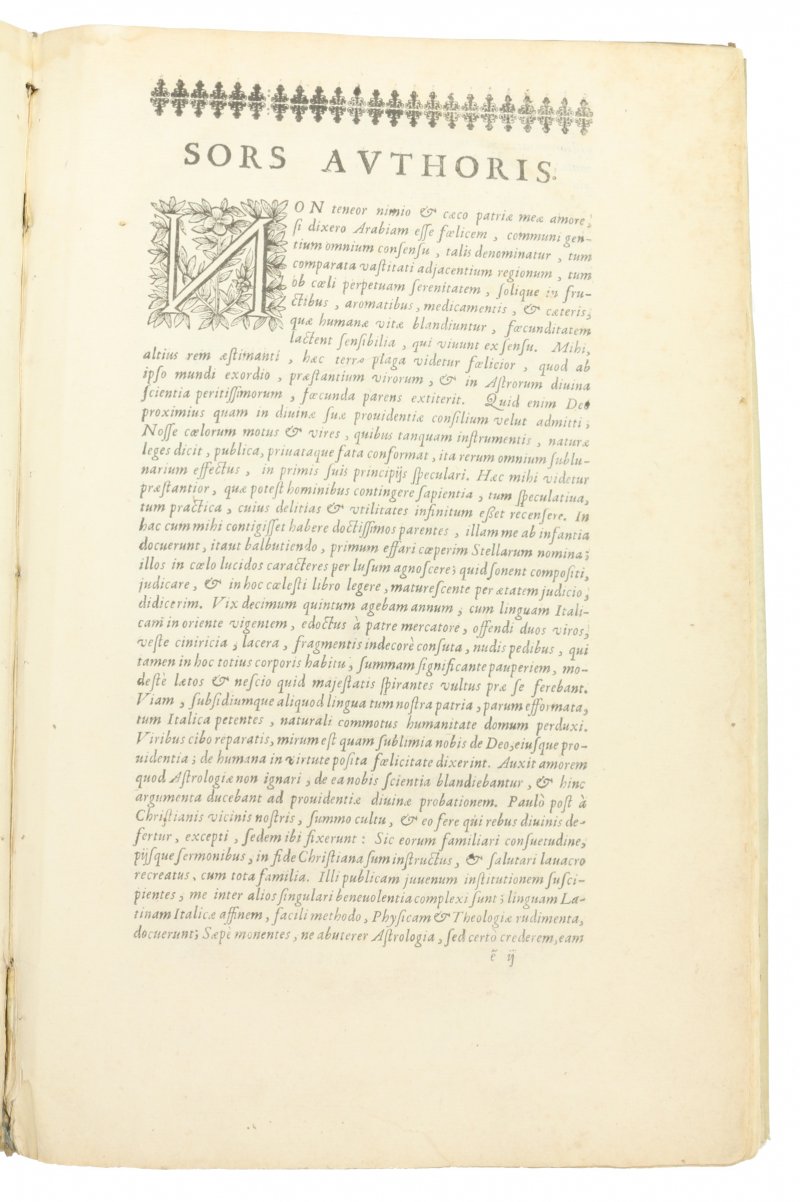 SORS AVTHORIS.
NON teneor nimio & cæco patriæ meæ amore,
si dixero Arabiam esse fœlicem, communi gen-
tium omnium consensu, talis denominatur, tum
comparata vastitati adjacentium regionum, tum
ob cœli perpetuam serenitatem, solique in fru-
ctibus, aromatibus, medicamentis, & cæteris,
quæ humanæ vitæ blandiuntur, fœcunditatem
lactent sensibilia, qui viuunt ex sensu. Mihi,
altius rem æstimanti, hæc terræ plaga videtur fœlicior, quod ab
ipso mundi exordio, præstantium virorum, & in Astrorum diuina
scientia peritissimorum, fœcunda parens extiterit. Quid enim Deo
proximius quam in diuinæ suæ prouidentiæ consilium velut admitti;
Nosse cœlorum motus & vires, quibus tanquam instrumentis, naturæ
leges dicit, publica, priuataque fata conformat, ita rerum omnium sublu-
narium effectus, in primis suis principijs speculari. Hæc mihi videtur
præstantior, quæ potest hominibus contingere sapientia, tum speculatiua,
tum practica, cuius delitias & vtilitates infinitum eßet recensere. In
hac cum mihi contigisset habere doctissimos parentes, illam me ab infantia
docuerunt, itaut balbutiendo, primum effari cœperim Stellarum nomina;
illos in cœlo lucidos caracteres per lusum agnoscere; quid sonent compositi,
judicare, & in hoc cœlesti libro legere, maturescente per ætatem judicio,
didicerim. Vix decimum quintum agebam annum, cum linguam Itali-
cam in oriente vigentem, edoctus à patre mercatore, offendi duos viros,
veste ciniricia, lacera, fragmentis indecorè consuta, nudis pedibus, qui
tamen in hoc totius corporis habitu, summam significante pauperiem, mo-
destè lætos & nescio quid majestatis spirantes vultus præ se ferebant.
Viam, subsidiumque aliquod lingua tum nostra patria, parum efformata,
tum Italica petentes, naturali commotus humanitate domum perduxi.
Viribus cibo reparatis, mirum est quam sublimia nobis de Deo, eiusque pro-
uidentia; de humana in virtute posita fœlicitate dixerint. Auxit amorem
quod Astrologiæ non ignari, de ea nobis scientia blandiebantur, & hinc
argumenta ducebant ad prouidentiæ diuinæ probationem. Paulò post à
Christianis vicinis nostris, summo cultu, & eo fere qui rebus diuinis de-
fertur, excepti, sedem ibi fixerunt: Sic eorum familiari consuetudine,
pijsque sermonibus, in fide Christiana sum instructus, & salutari lauacro
recreatus, cum tota familia. Illi publicam juuenum institutionem susci-
pientes, me inter alios singulari beneuolentia complexi sunt; linguam La-
tinam Italicæ affinem, facili methodo, Physicam & Theologiæ rudimenta,
docuerunt; Sæpè monentes, ne abuterer Astrologia, sed certò crederem, eam
ẽ ij